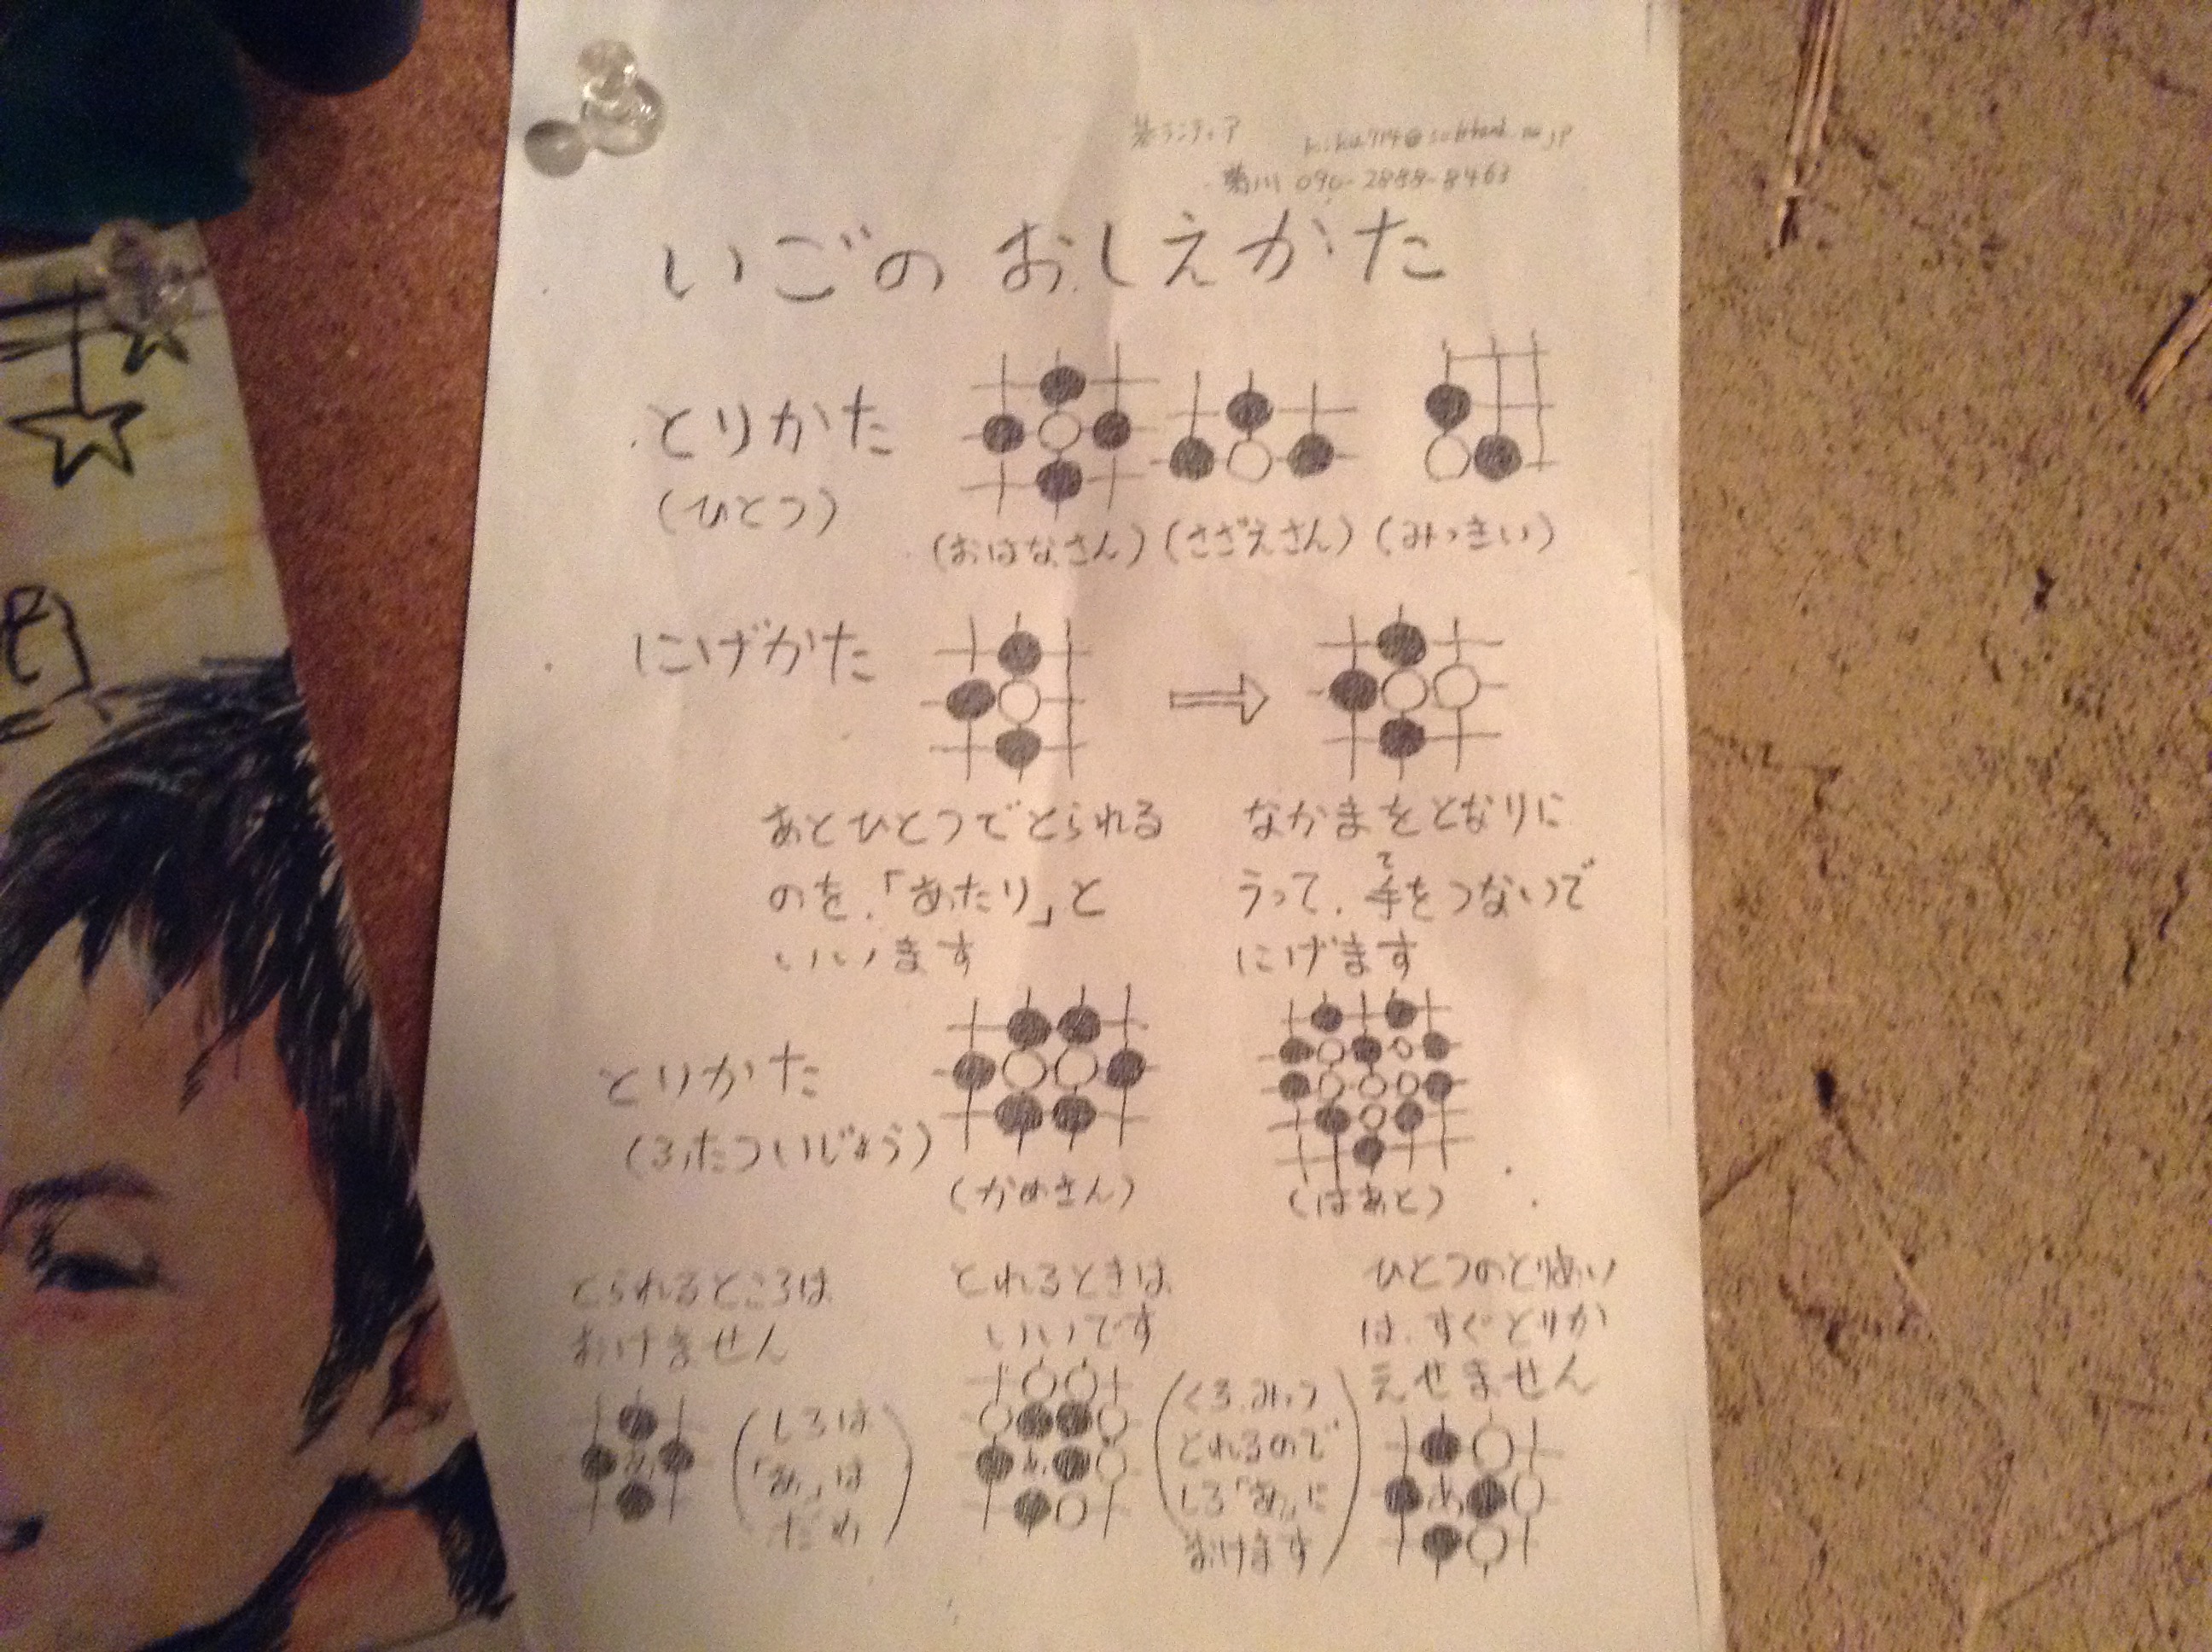 菊川 090-2888-8463
いごの おしえかた
とりかた
(ひとつ)
(おはなさん) (さざえさん) (みっきい)
にげかた
あとひとつでとられる
のを、「あたり」と
いいます
なかまをとなりに
て
うって、手をつないで
にげます
とりかた
(ふたついじょう)
(かめさん)
(はあと)
とられるところは
おけません
あ
(しろは
「あ」は
だめ)
とれるときは
いいです
あ
(くろみっつ
とれるので
しろ「あ」に
おけます)
ひとつのと
は、すぐとりか
えせません
あ